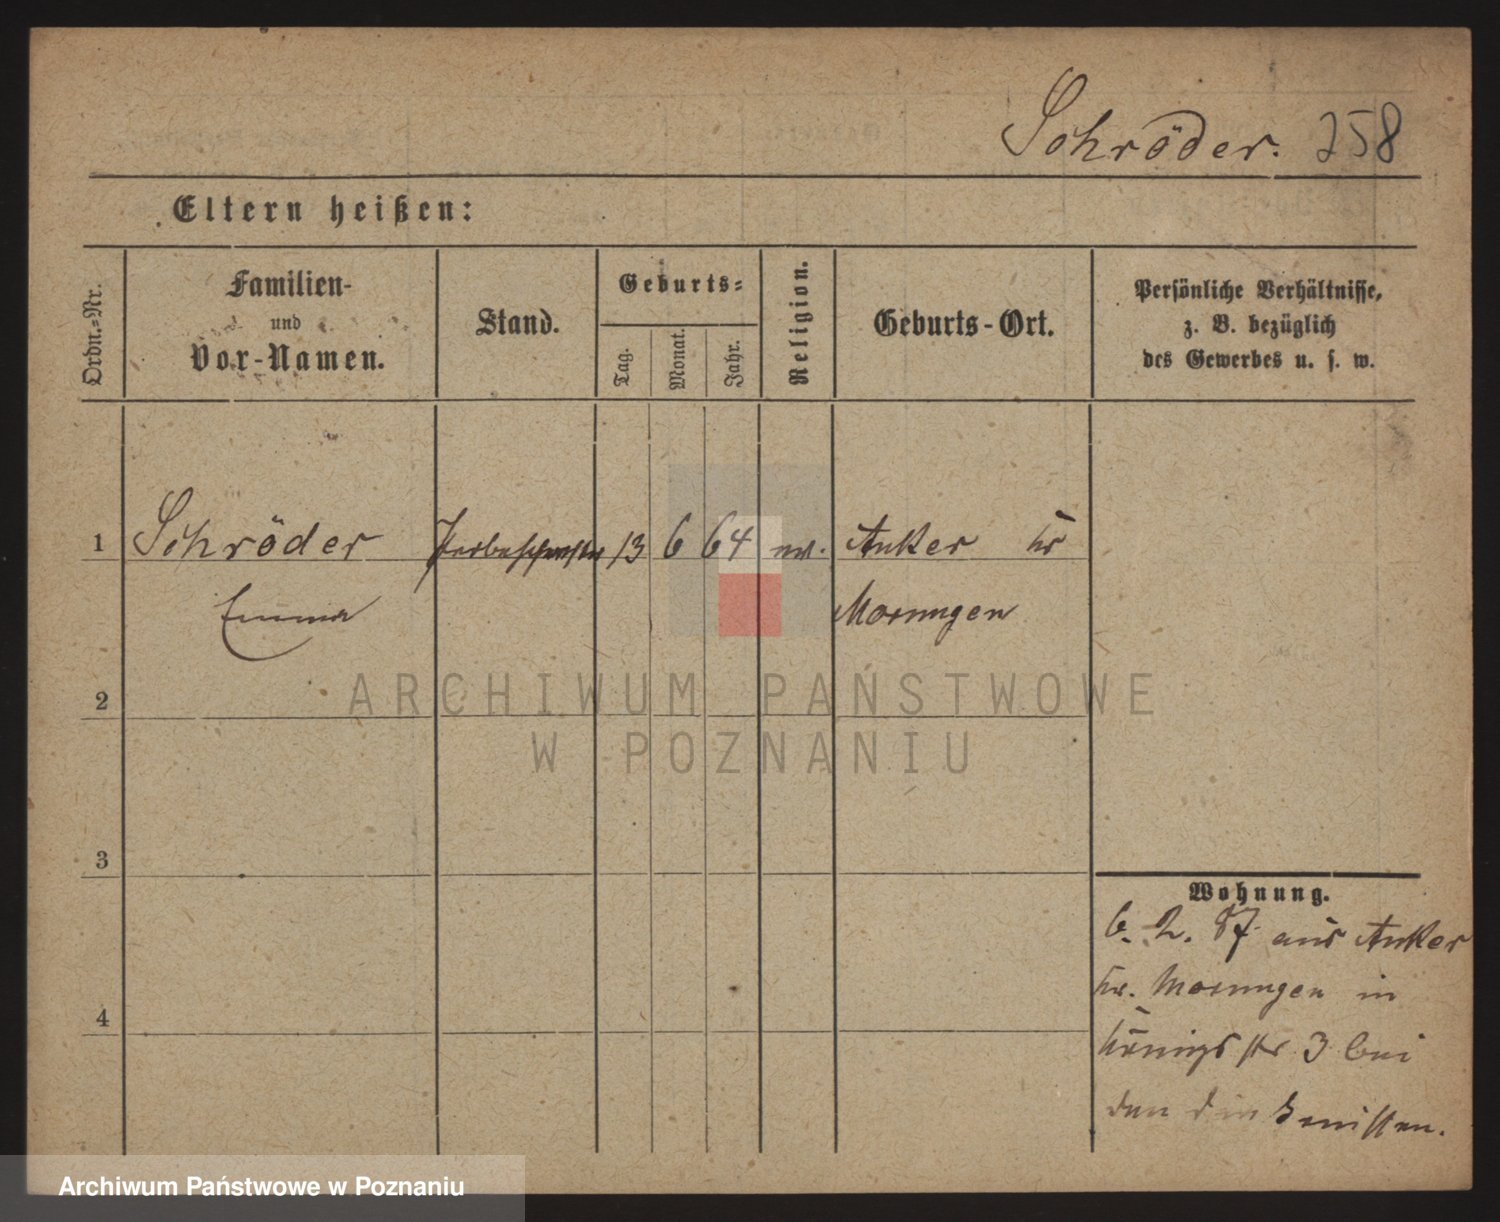 Schröder. 258
Eltern heißen:
Ordn.=Nr.
Familien-
und
Vor-Namen.
Stand.
Geburts=
Tag.
Monat.
Jahr.
Religion.
Geburts-Ort.
Persönliche Verhältnisse,
z. B. bezüglich
des Gewerbes u. s. w.
1 Schröder 13 6 64 ev. Anker Kr
Emma Morungen
2
3
4
Wohnung.
6. 2. 87 aus Anker
Kr. Morungen in
Königsstr 3 bei
den
ARCHIWUM PAŃSTWOWE
W POZNANIU
Archiwum Państwowe w Poznaniu